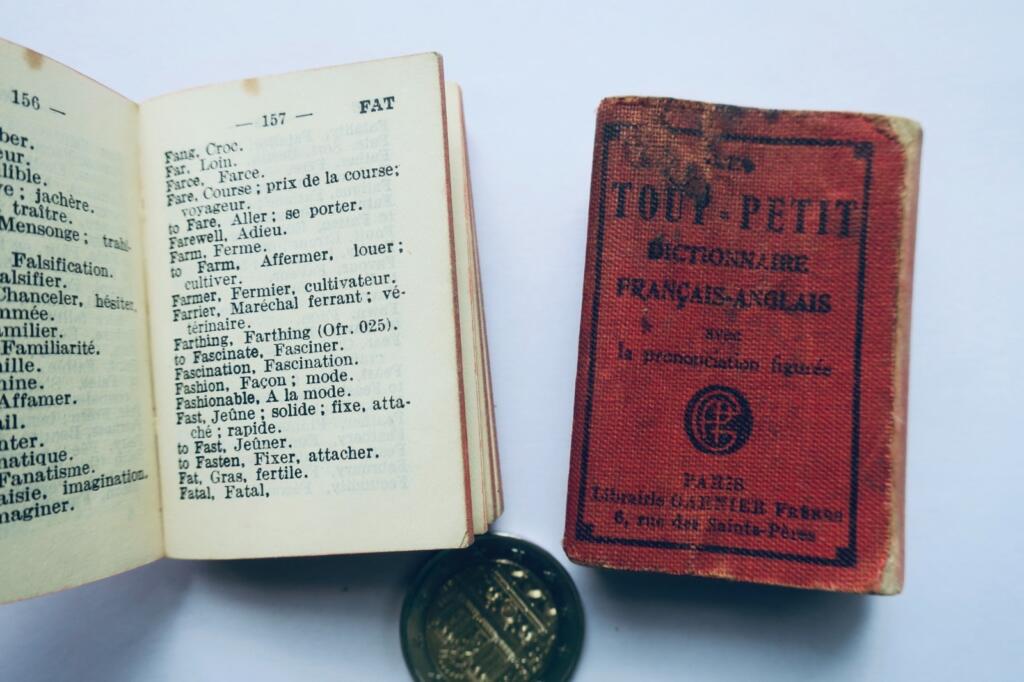 156 —
ber.
eur.
lible.
ve ; jachère.
traître.
Mensonge ; trahi-
Falsification.
alsifier.
Chanceler, hésiter.
mmée.
amilier.
Familiarité.
ille.
nine.
Affamer.
ail.
nter.
natique.
Fanatisme.
aisie, imagination.
maginer.
— 157 — FAT
Fang, Croc.
Far, Loin.
Farce, Farce.
Fare, Course ; prix de la course;
voyageur.
to Fare, Aller ; se porter.
Farewell, Adieu.
Farm, Ferme.
to Farm, Affermer, louer ;
cultiver.
Farmer, Fermier, cultivateur.
Farrier, Maréchal ferrant ; vé-
térinaire.
Farthing, Farthing (Ofr. 025).
to Fascinate, Fasciner.
Fascination, Fascination.
Fashion, Façon ; mode.
Fashionable, A la mode.
Fast, Jeûne ; solide ; fixe, atta-
ché ; rapide.
to Fast, Jeûner.
to Fasten, Fixer, attacher.
Fat, Gras, fertile.
Fatal, Fatal,
TOUT-PETIT
DICTIONNAIRE
FRANÇAIS-ANGLAIS
avec
la prononciation figurée
PARIS
Librairie GARNIER FRÈRES
6, rue des Saints-Pères